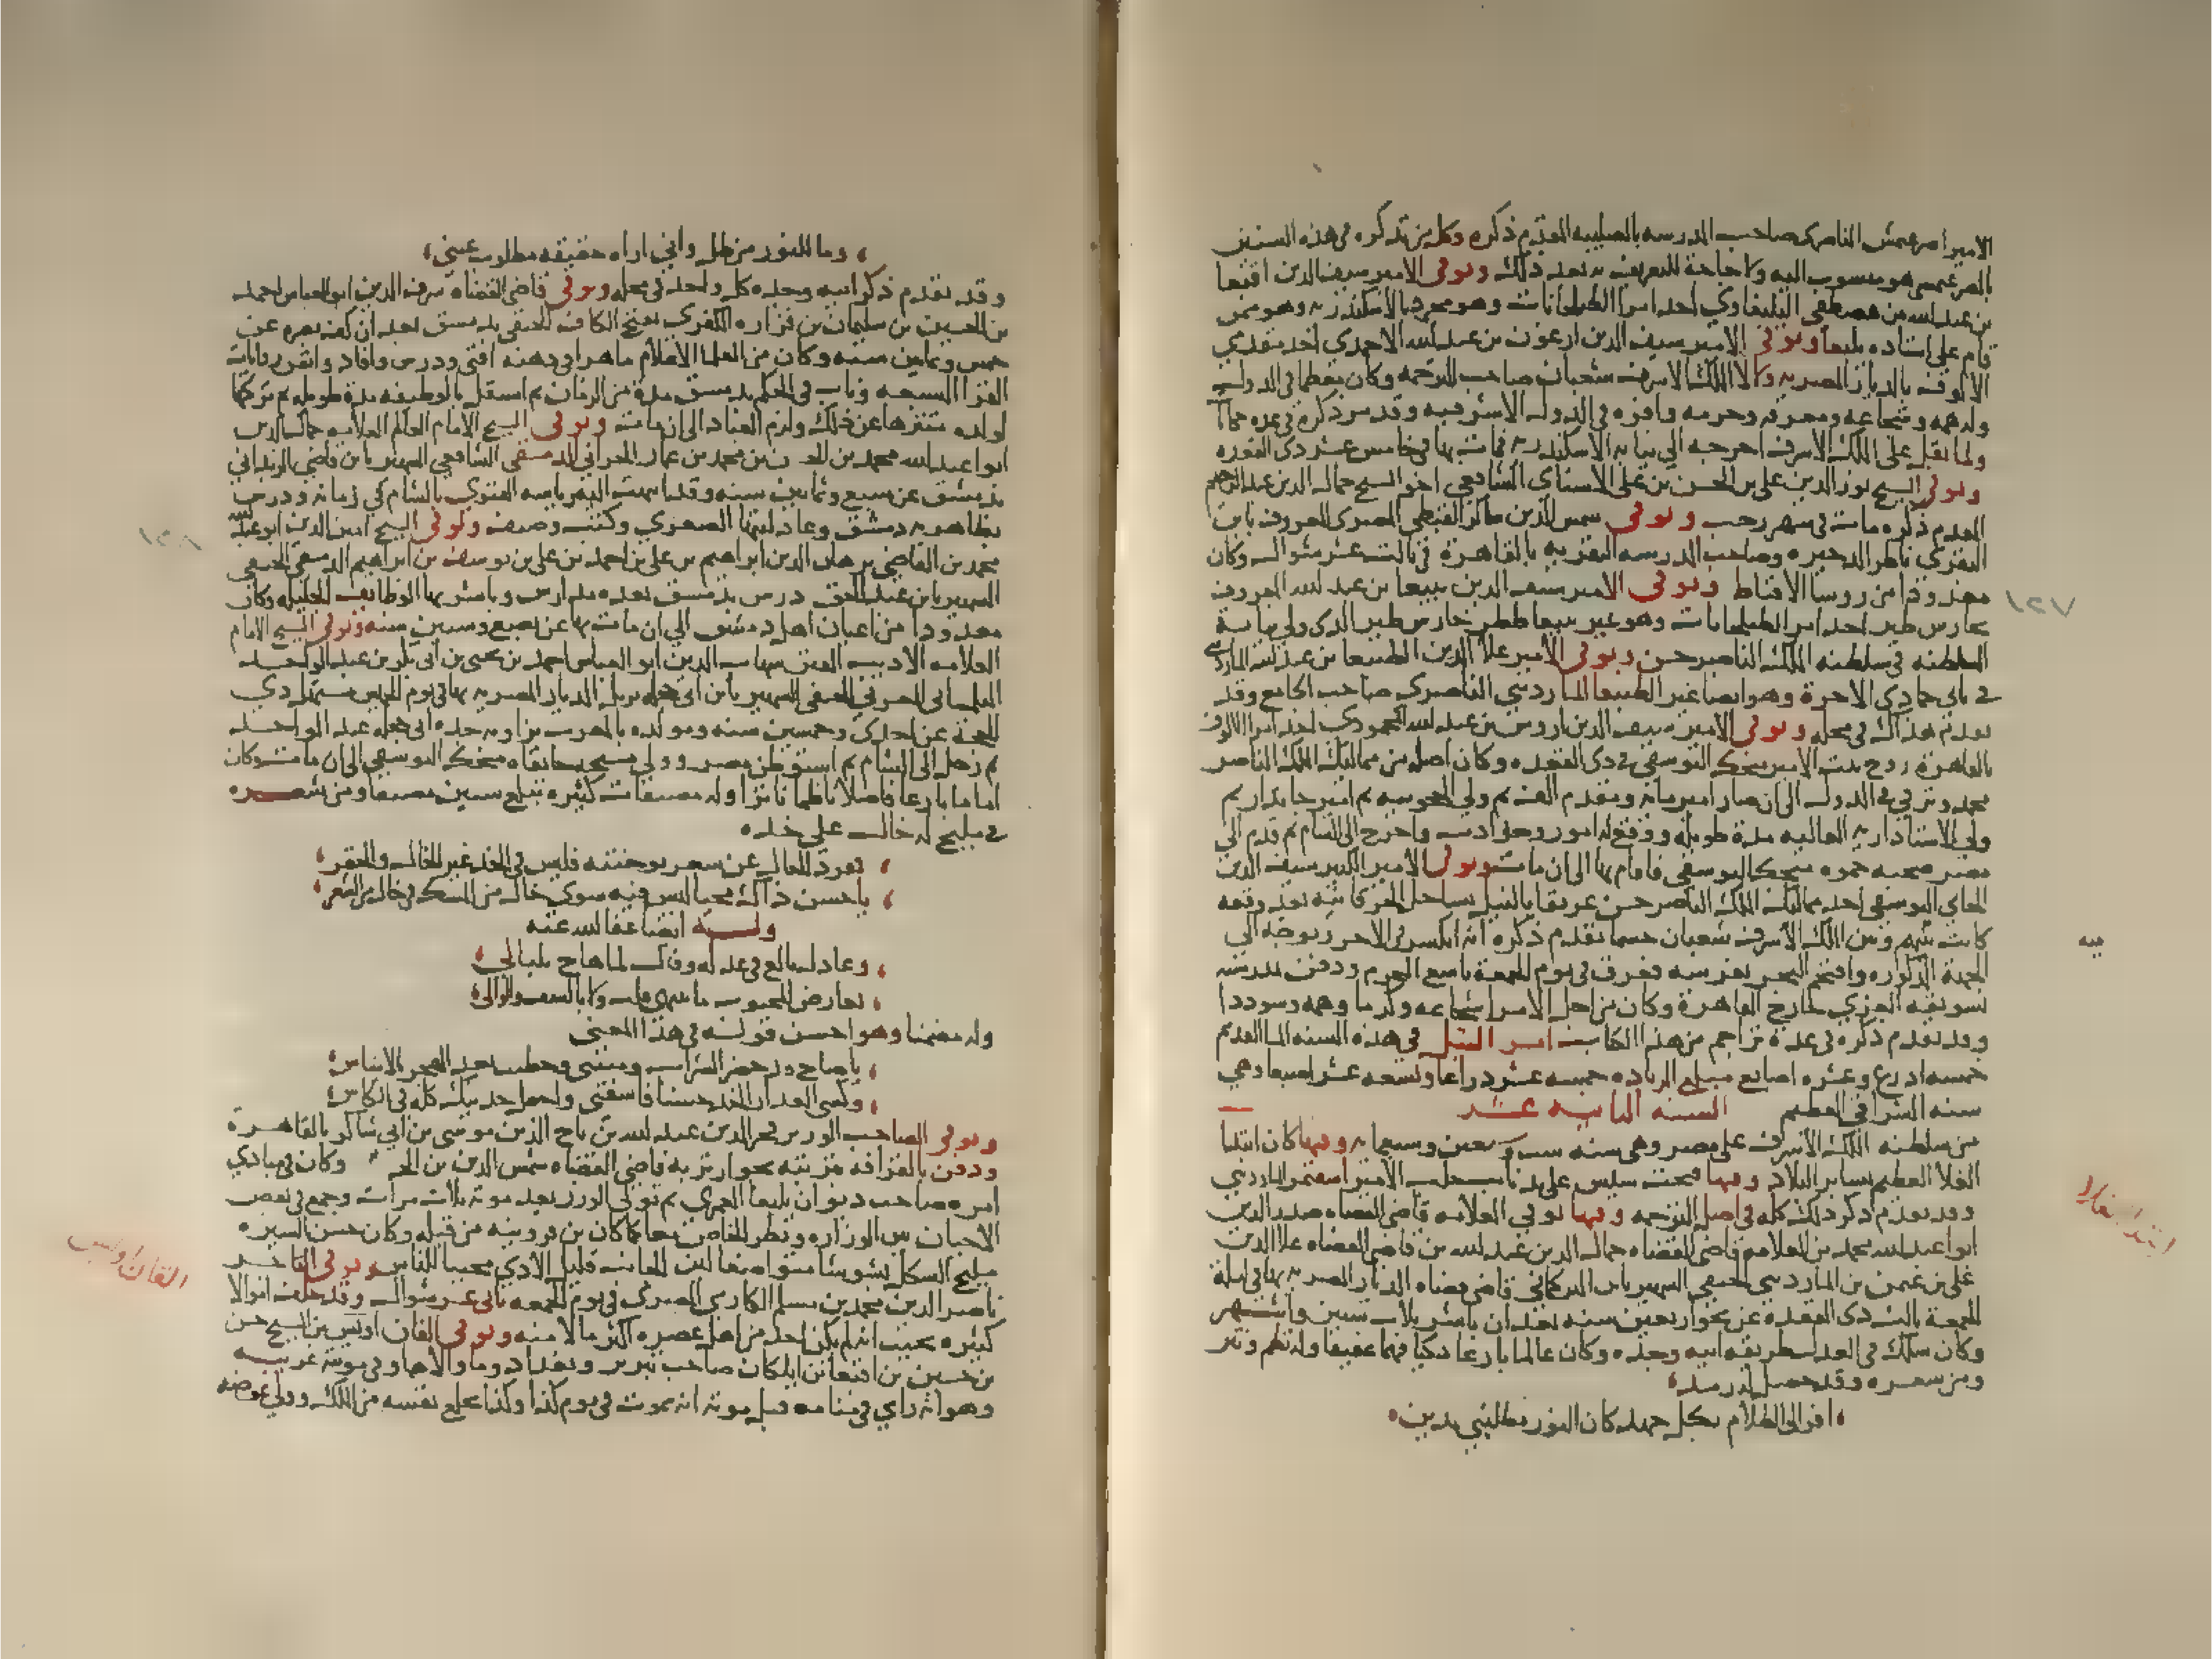 الامير صرغتمش الناصري صاحب المدرسة بالصليبه المقدم ذكره وكل من تذكره في هذه السنين
بالصرغتمشي هو منسوب اليه ولا حاجة للتعريف به بعد ذلك وتوفي الامير سيف الدين اقبغا
بن عبد الله من مصطفى اليلبغاوي احد امرا الطبلخانات وهو مجرد بالاسكندريه وهو ممن
قام على استاده يلبغا وتوفي الامير سيف الدين ارغون بن عبد الله الاحمدي احد مقدمي
الالوف بالديار المصريه ولالا الملك الاشرف شعبان صاحب الترجمه وكان معظما في الدوله
وله همه وشجاعه ومعرفه وحرمه وافره في الدوله الاشرفيه وقد مر ذكره في عده
ولما ثقل على الملك الاشرف اخرجه الى نيابة الاسكندريه فمات بها في خامس عشر ذي القعده
وتوفي الشيخ نور الدين علي بن الحسن بن علي الاسناي الشافعي اخو الشيخ جمال الدين عبد الرحيم
المقدم ذكره مات في شهر رجب وتوفي شمس الدين شاكر القبطي المصري المعروف بابن
البقري ناظر الدخيره وصاحب المدرسه البقريه بالقاهرة في ثالث عشر شوال وكان
معدودا من روسا الاقباط وتوفي الامير سيف الدين بيبغا بن عبد الله المعروف
بحارس طير احد امرا الطبلخانات وهو غير بيبغا ططر حارس طير الذي ولي نيابة
السلطنه في سلطنه الملك الناصر حسن وتوفي الامير علا الدين الطنبغا بن عبد الله المارديني
في ثاني جمادي الاخرة وهو ايضا غير الطنبغا المارديني الناصري صاحب الجامع وقد
تقدم هذاك في محله وتوفي الامير سيف الدين اروس بن عبد الله المحمودي احد امرا الالوف
بالقاهرة زوج بنت الامير منجك اليوسفي في ذي القعده وكان اصله من مماليك الملك الناصر
محمد وترقى في الدوله الى ان صار امير مائه ومقدم الف ثم ولي الحجوبيه ثم امير جاندار ثم
ولي الاستاداريه العاليه مدة طويله ووقع له امور وحوادث واخرج الى الشام ثم قدم الى
مصر صحبه حموه منجك اليوسفي فاقام بها الى ان مات وتوفي الامير الكبير سيف الدين
الجاي اليوسفي احد مماليك الملك الناصر حسن غريقا بالنيل بساحل الخرقانيه بعد وقعه
كانت بينهم وبين الملك الاشرف شعبان حسبما تقدم ذكره انه انكسر في الاخر وتوجه الى
الجهة المذكوره واقتحم البحر بفرسه فغرق في يوم الجمعة تاسع المحرم ودفن بمدرسته
بسويقه العزي خارج القاهرة وكان من اجل الامرا شجاعه وكرما وهمه وسوددا
وقد تقدم ذكره في عدة تراجم من هذا الكتاب امر النيل في هذه السنه الما القديم
خمسه ادرع وعشره اصابع مبلغ الزياده خمسه عشر دراعا وتسعه عشر اصبعا وهي
سنه الشراقي العظيم السنه الثانيه عشر
من سلطنه الملك الاشرف على مصر وهي سنه ست وسبعين وسبعمايه وفيها كان ابتدا
الغلا العظيم بساير البلاد وفيها فتحت سيس على يد نايب حلب الامير اشقتمر المارديني
وقد تقدم ذكر ذلك كله في اصل الترجمه وفيها توفي العلامه قاضي القضاه صدر الدين
ابو عبد الله محمد بن العلامه قاضي القضاه جمال الدين عبد الله بن قاضي القضاه علا الدين
علي بن عثمن بن المارديني الحنفي الشهير بابن التركماني قاضي قضاه الديار المصريه بها في ليلة
الجمعة ثالث ذي القعده عن نحو اربعين سنه بعد ان باشر ثلاث سنين واشهر
وكان سلك في العدل طريقه ابيه وجده وكان عالما بارعا دكيا فهما عفيفا وله نظم ونثر
ومن شعره وقد حصل له رمد
افر الى الظلام بكل جهد كان النور يطلبني بدين
١٢٧
ابتداء غلا
وما للنور من ظل واني اراه حقيقه مطلوب عيني
وقد تقدم ذكر ابيه وجده كل واحد في محله وتوفي قاضي القضاة شرف الدين ابو العباس احمد
بن الحسين بن سليمان بن فزاره الكفري بفتح الكاف الحنفي بدمشق بعد ان كف بصره عن
خمس وثمانين سنه وكان من العلما الاعلام ماهرا في مذهبه افتى ودرس وافاد واتقن روايات
القرا السبعه وناب في الحكم بدمشق مدة من الزمان ثم استقل بالوظيفه مدة طويله ثم تركها
لولده متنزها عن ذلك ولزم العباد الى ان مات وتوفي الشيخ الامام العالم العلامه جمال الدين
ابو عبد الله محمد بن محمد بن عمار الحراني الدمشقي الشافعي الشهير بابن قاضي الزبداني
بدمشق عن سبع وثمانين سنه وقد انتهت اليه رياسه الفتوي بالشام في زمانه ودرس
بظاهريه دمشق وعادليتها الصغري وكتب وصنف وتوفي الشيخ امين الدين ابو عبد الله
محمد بن القاضي برهان الدين ابراهيم بن علي بن احمد بن علي بن يوسف بن ابراهيم الدمشقي الحنفي
الشهير بابن عبد الحق درس بدمشق بعده مدارس وباشر بها الوظائف الجليله وكان
معدودا من اعيان اهل دمشق الى ان مات بها عن بضع وستين سنه وتوفي الشيخ الامام
العلامه الاديب المفتن شهاب الدين ابو العباس احمد بن يحيى بن ابي بكر بن عبد الواحد
التلمساني المغربي الحنفي الشهير بابن ابي حجله نزيل الديار المصريه بها في يوم الخميس مستهل دي
الحجة عن احدى وخمسين سنه ومولده بالمغرب بزاويه جده ابي حجله عبد الواحد
ثم رحل الى الشام ثم استوطن مصر وولي مشيخه خانقاه منجك اليوسفي الى ان مات وكان
اماما بارعا فاضلا ناظما ناثرا وله مصنفات كثيره تبلغ ستين مصنفا ومن شعره
في مليح له خال على خده
تفرد الخال عن شعر بوجنته فليس في الخد غير الخال والخفر
يا حسن ذاك محيا ليس فيه سوى خال من المسك في خال من الشعر
وله ايضا عفا الله عنه
وعادل بالغ في عدله وقال لما هاج بلبالي
بعارض المحبوب ما تنتهي قلت ولا بالسيف والوالي
وله مضمنا وهو احسن قوله في هذا المعنى
يا صاح قد حضر الشراب ومنيتي وحظيت بعد الهجر بالايناس
وكسى العدار الخد حسنا فاسقني واجعل حديثك كله في الكاس
وتوفي الصاحب الوزير فخر الدين عبد الله بن تاج الدين موسى بن ابي شاكر بالقاهرة
ودفن بالقرافه عند تربته بجوار تربه قاضي القضاه شمس الدين بن وكان في مبادي
امره صاحب ديوان يلبغا العمري ثم تولى الوزر بعد موته ثلاث مرات وجمع في بعض
الاحيان بين الوزاره ونظر الخاص معا كما كان بن قروينه من قبله وكان حسن السيره
مليح الشكل بشوشا متواضعا لين الجانب قليل الادي محببا للناس وتوفي التاجر
ناصر الدين محمد بن مسلم الكارمي المصري في يوم الجمعه ثاني عشر شوال وقد خلف اموالا
كثيره بحيث انه لم يكن احد من اهل عصره اكثر مالا منه وتوفي القان اويس بن الشيخ حسن
بن حسين بن اقبغا بن ايلكان صاحب تبريز وبغداد وما والاها وفي موته غريبه
وهو انه راي في منامه قبل موته انه يموت في يوم كذا وكذا فخلع نفسه من الملك وولى عوضه
١٢٨
القان اويس